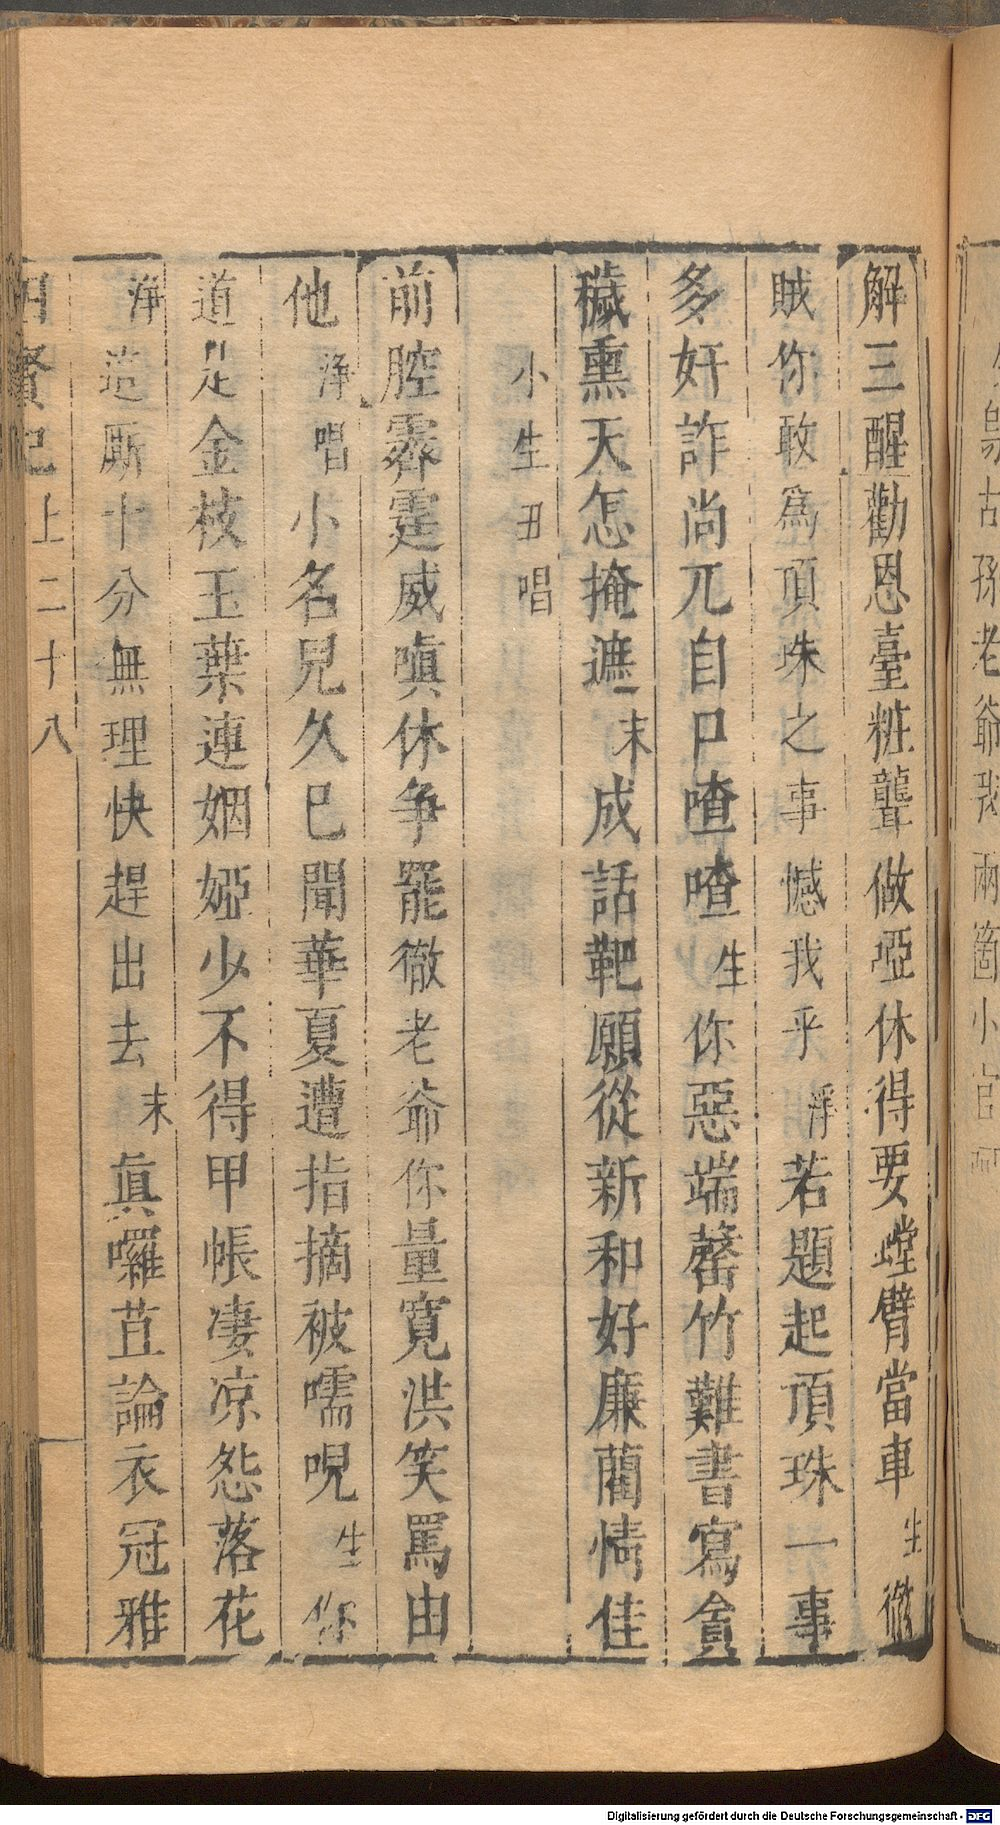 解三酲勸恩臺粧聾做啞休得要螳臂當車生徹
賊你敢爲頂珠之事憾我乎淨若題起頂珠一事
多奸詐尚兀自口喳喳生你惡端罄竹難書寫貪
穢熏天怎掩遮末成話靶願從新和好廉藺情佳
小生丑唱
前腔霽霆威嗔休爭罷徹老爺你量寬洪笑罵由
他淨唱小名兒久已聞華夏遭指摘被嚅唲生你
道是金枝玉葉連姻婭少不得甲帳凄凉怨落花
淨這厮十分無理快趕出去末眞囉苴論衣冠雅
賢記 上 二十八
古孫老爺我兩箇小官
Digitalisierung gefördert durch die Deutsche Forschungsgemeinschaft - DFG